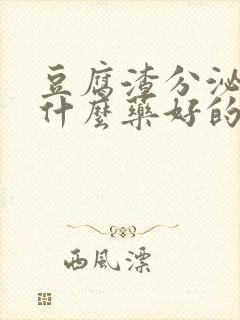 豆腐渣分泌
什麼藥好的
西風漂